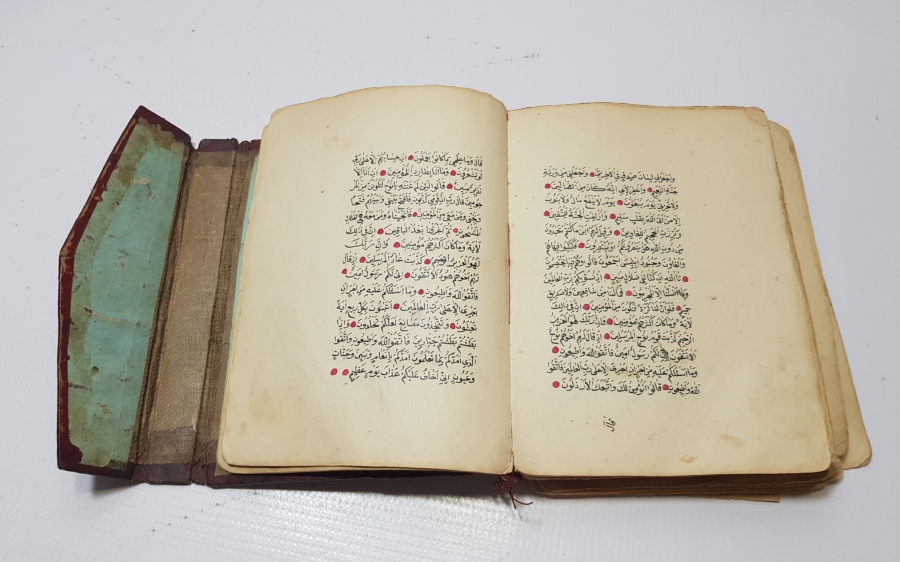 وَاجْعَلْ لِي لِسَانَ صِدْقٍ فِي الْاٰخِرِينَ وَاجْعَلْنِي مِنْ وَرَثَةِ
جَنَّةِ النَّعِيمِ وَاغْفِرْ لِاَبِي اِنَّهُ كَانَ مِنَ الضَّالِّينَ
وَلَا تُخْزِنِي يَوْمَ يُبْعَثُونَ يَوْمَ لَا يَنْفَعُ مَالٌ وَلَا بَنُونَ
اِلَّا مَنْ اَتَى اللّٰهَ بِقَلْبٍ سَلِيمٍ وَاُزْلِفَتِ الْجَنَّةُ لِلْمُتَّقِينَ
وَبُرِّزَتِ الْجَحِيمُ لِلْغَاوِينَ وَقِيلَ لَهُمْ اَيْنَ مَا كُنْتُمْ تَعْبُدُونَ
مِنْ دُونِ اللّٰهِ هَلْ يَنْصُرُونَكُمْ اَوْ يَنْتَصِرُونَ فَكُبْكِبُوا فِيهَا هُمْ
وَالْغَاوُنَ وَجُنُودُ اِبْلِيسَ اَجْمَعُونَ قَالُوا وَهُمْ فِيهَا يَخْتَصِمُونَ
تَاللّٰهِ اِنْ كُنَّا لَفِي ضَلَالٍ مُبِينٍ اِذْ نُسَوِّيكُمْ بِرَبِّ الْعَالَمِينَ
وَمَا اَضَلَّنَا اِلَّا الْمُجْرِمُونَ فَمَا لَنَا مِنْ شَافِعِينَ وَلَا صَدِيقٍ
حَمِيمٍ فَلَوْ اَنَّ لَنَا كَرَّةً فَنَكُونَ مِنَ الْمُؤْمِنِينَ اِنَّ فِي ذٰلِكَ
لَاٰيَةً وَمَا كَانَ اَكْثَرُهُمْ مُؤْمِنِينَ وَاِنَّ رَبَّكَ لَهُوَ الْعَزِيزُ
الرَّحِيمُ كَذَّبَتْ قَوْمُ نُوحٍ الْمُرْسَلِينَ اِذْ قَالَ لَهُمْ اَخُوهُمْ نُوحٌ
اَلَا تَتَّقُونَ اِنِّي لَكُمْ رَسُولٌ اَمِينٌ فَاتَّقُوا اللّٰهَ وَاَطِيعُونِ
وَمَا اَسْئَلُكُمْ عَلَيْهِ مِنْ اَجْرٍ اِنْ اَجْرِيَ اِلَّا عَلٰى رَبِّ الْعَالَمِينَ فَاتَّقُوا
اللّٰهَ وَاَطِيعُونِ قَالُوا اَنُؤْمِنُ لَكَ وَاتَّبَعَكَ الْاَرْذَلُونَ
قال
قَالَ وَمَا عِلْمِي بِمَا كَانُوا يَعْمَلُونَ اِنْ حِسَابُهُمْ اِلَّا عَلٰى رَبِّي
لَوْ تَشْعُرُونَ وَمَا اَنَا بِطَارِدِ الْمُؤْمِنِينَ اِنْ اَنَا اِلَّا
نَذِيرٌ مُبِينٌ قَالُوا لَئِنْ لَمْ تَنْتَهِ يَا نُوحُ لَتَكُونَنَّ مِنَ الْمَرْ
جُومِينَ قَالَ رَبِّ اِنَّ قَوْمِي كَذَّبُونِ فَافْتَحْ بَيْنِي وَبَيْنَهُمْ فَتْحًا
وَنَجِّنِي وَمَنْ مَعِيَ مِنَ الْمُؤْمِنِينَ فَاَنْجَيْنَاهُ وَمَنْ مَعَهُ فِي الْفُلْكِ
الْمَشْحُونِ ثُمَّ اَغْرَقْنَا بَعْدُ الْبَاقِينَ اِنَّ فِي ذٰلِكَ
لَاٰيَةً وَمَا كَانَ اَكْثَرُهُمْ مُؤْمِنِينَ وَاِنَّ رَبَّكَ
لَهُوَ الْعَزِيزُ الرَّحِيمُ كَذَّبَتْ عَادٌ الْمُرْسَلِينَ اِذْ قَالَ
لَهُمْ اَخُوهُمْ هُودٌ اَلَا تَتَّقُونَ اِنِّي لَكُمْ رَسُولٌ اَمِينٌ
فَاتَّقُوا اللّٰهَ وَاَطِيعُونِ وَمَا اَسْئَلُكُمْ عَلَيْهِ مِنْ اَجْرٍ اِنْ
اَجْرِيَ اِلَّا عَلٰى رَبِّ الْعَالَمِينَ اَتَبْنُونَ بِكُلِّ رِيعٍ اٰيَةً
تَعْبَثُونَ وَتَتَّخِذُونَ مَصَانِعَ لَعَلَّكُمْ تَخْلُدُونَ وَاِذَا
بَطَشْتُمْ بَطَشْتُمْ جَبَّارِينَ فَاتَّقُوا اللّٰهَ وَاَطِيعُونِ وَاتَّقُوا
الَّذِي اَمَدَّكُمْ بِمَا تَعْلَمُونَ اَمَدَّكُمْ بِاَنْعَامٍ وَبَنِينَ وَجَنَّاتٍ
وَعُيُونٍ اِنِّي اَخَافُ عَلَيْكُمْ عَذَابَ يَوْمٍ عَظِيمٍ